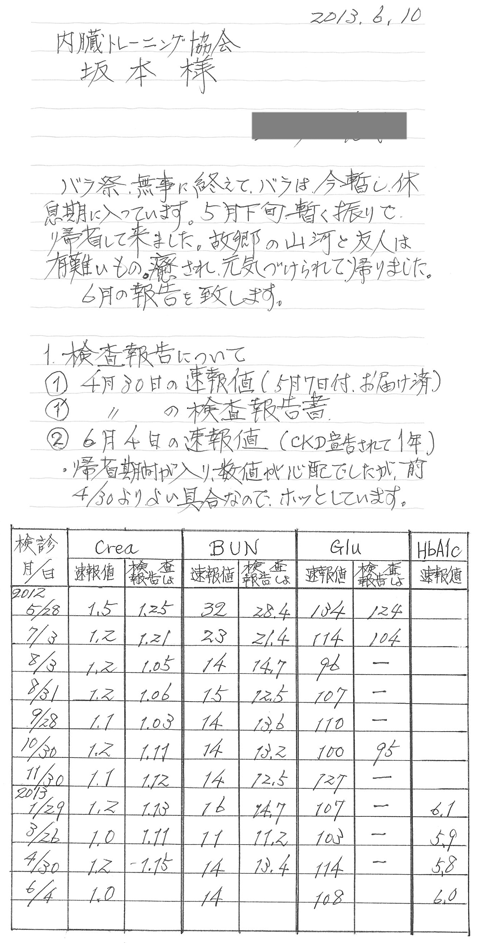 2013.6.10
内臓トレーニング協会
坂本 様
バラ祭、無事に終えて、バラは今暫し、休
息期に入っています。5月下旬、暫く振りで
帰省して来ました。故郷の山河と友人は
有難いもの。癒され、元気づけられて帰りました。
6月の報告を致します。
1. 検査報告について
① 4月30日の速報値(5月7日付、お届け済)
① 〃 の検査報告書
② 6月4日の速報値 (CKD宣告されて1年)
・帰省期間が入り、数値が心配でしたが、前
4/30よりよい具合なので、ホッとしています。
検診 Crea BUN Glu HbA1c
月/日 速報値 検査報告しょ 速報値 検査報告しょ 速報値 検査報告しょ 速報値
2012
5/28 1.5 1.25 32 28.4 134 124
7/3 1.2 1.21 23 21.4 114 104
8/3 1.2 1.05 14 14.7 96 ー
8/31 1.2 1.06 15 12.5 107 ー
9/28 1.1 1.03 14 13.6 110 ー
10/30 1.2 1.11 14 13.2 100 95
11/30 1.1 1.12 14 12.5 127 ー
2013
1/29 1.2 1.13 16 14.7 107 ー 6.1
3/26 1.0 1.11 11 11.2 103 ー 5.9
4/30 1.2 1.15 14 13.4 114 ー 5.8
6/4 1.0 14 108 6.0